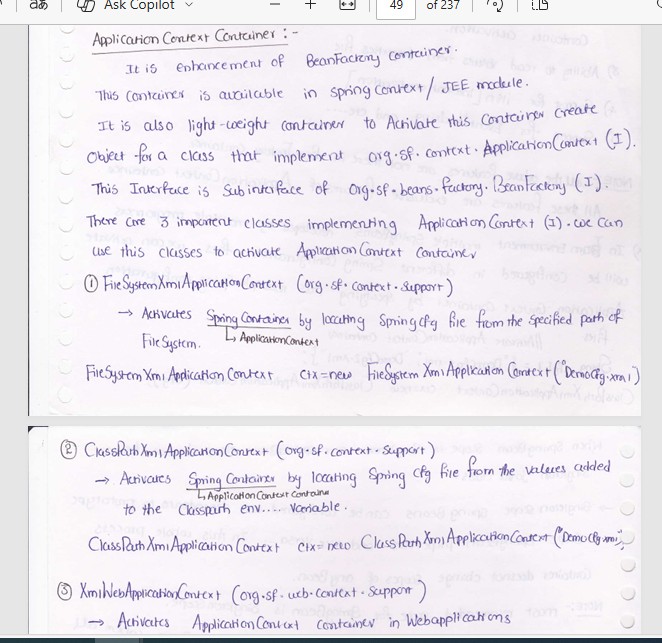 Ask Copilot
49 of 237
Application Context Container :-
It is enhancement of BeanFactory container.
This container is available in spring context / JEE module.
It is also light-weight container to Activate this Container create
Object for a class that implement org.sf.context.ApplicationContext (I).
This Interface is Sub interface of org.sf.beans.factory.BeanFactory (I).
There are 3 important classes implementing Application Context (I). we can
use this classes to activate Application Context container
① FileSystemXmlApplicationContext (org.sf.context.support)
→ Activates Spring Container by locating Spring cfg file from the specified path of
File System.
↳ ApplicationContext
FileSystem Xml Application Context ctx = new FileSystem Xml Application Context ("Democfg.xml)
② ClassPath Xml Application Context (org.sf.context.support)
→ Activates Spring Container by locating Spring cfg file from the values added
↳ Application Context Containe
to the Classpath env.... Variable.
ClassPath Xml Application Context ctx = new ClassPath Xml ApplicationContext ("Democfg.xml)
③ XmlWebApplicationContext (org.sf.web.context.support)
→ Activates Application Context container in Webapplications